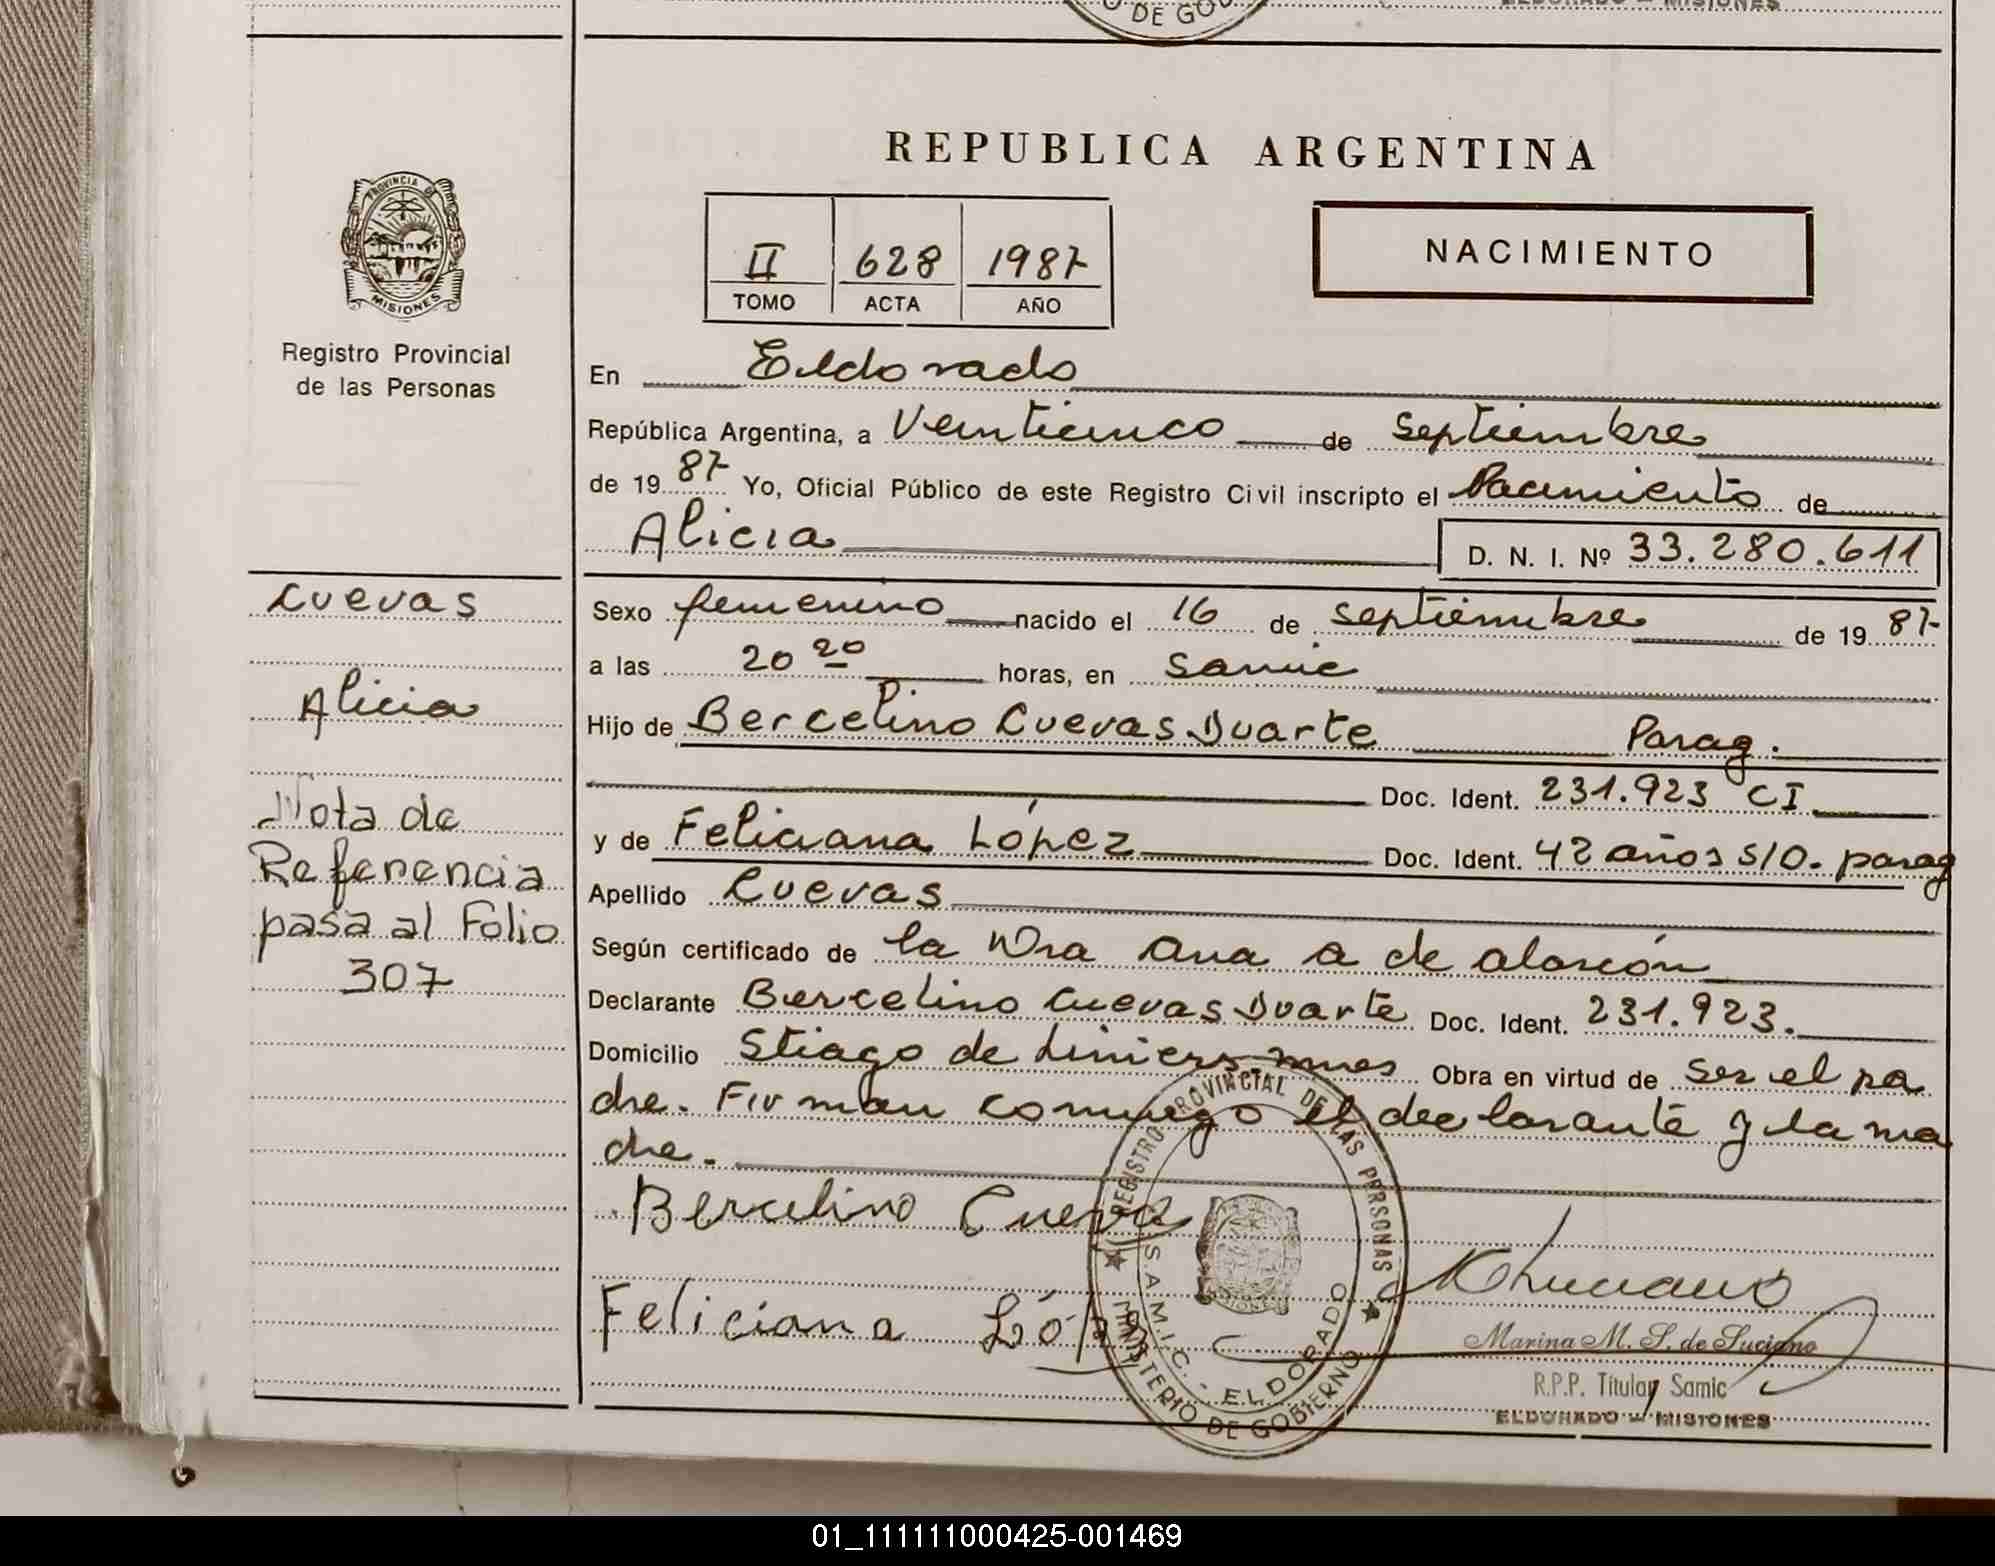 DE GOB
ELDORADO — MISIONES
REPUBLICA ARGENTINA
PROVINCIA DE
MISIONES
II 628 1987
TOMO ACTA AÑO
NACIMIENTO
Registro Provincial
de las Personas
En Eldorado
República Argentina, a Veinticinco de Septiembre
de 1987 Yo, Oficial Público de este Registro Civil inscripto el Nacimiento de
Alicia D. N. I. Nº 33.280.611
Cuevas
Alicia
Nota de
Referencia
pasa al Folio
307
Sexo femenino nacido el 16 de septiembre de 1987
a las 20 20 horas, en Samic
Hijo de Bercelino Cuevas Duarte Parag.
Doc. Ident. 231.923 CI
y de Feliciana López Doc. Ident. 42 años S/D. parag
Apellido Cuevas
Según certificado de la Dra Ana A de Alarcón
Declarante Bercelino Cuevas Duarte Doc. Ident. 231.923.
Domicilio Stiago de Liniers mnes Obra en virtud de ser el pa
dre. Firman conmigo el declarante y la ma
dre.
Bercelino Cueva
Feliciana Lóp
REGISTRO PROVINCIAL DE LAS PERSONAS
S.A.M.I.C. - ELDORADO
MINISTERIO DE GOBIERNO
Marina M. S. de Luciano
R.P.P. Titular Samic
ELDORADO — MISIONES
01_111111000425-001469